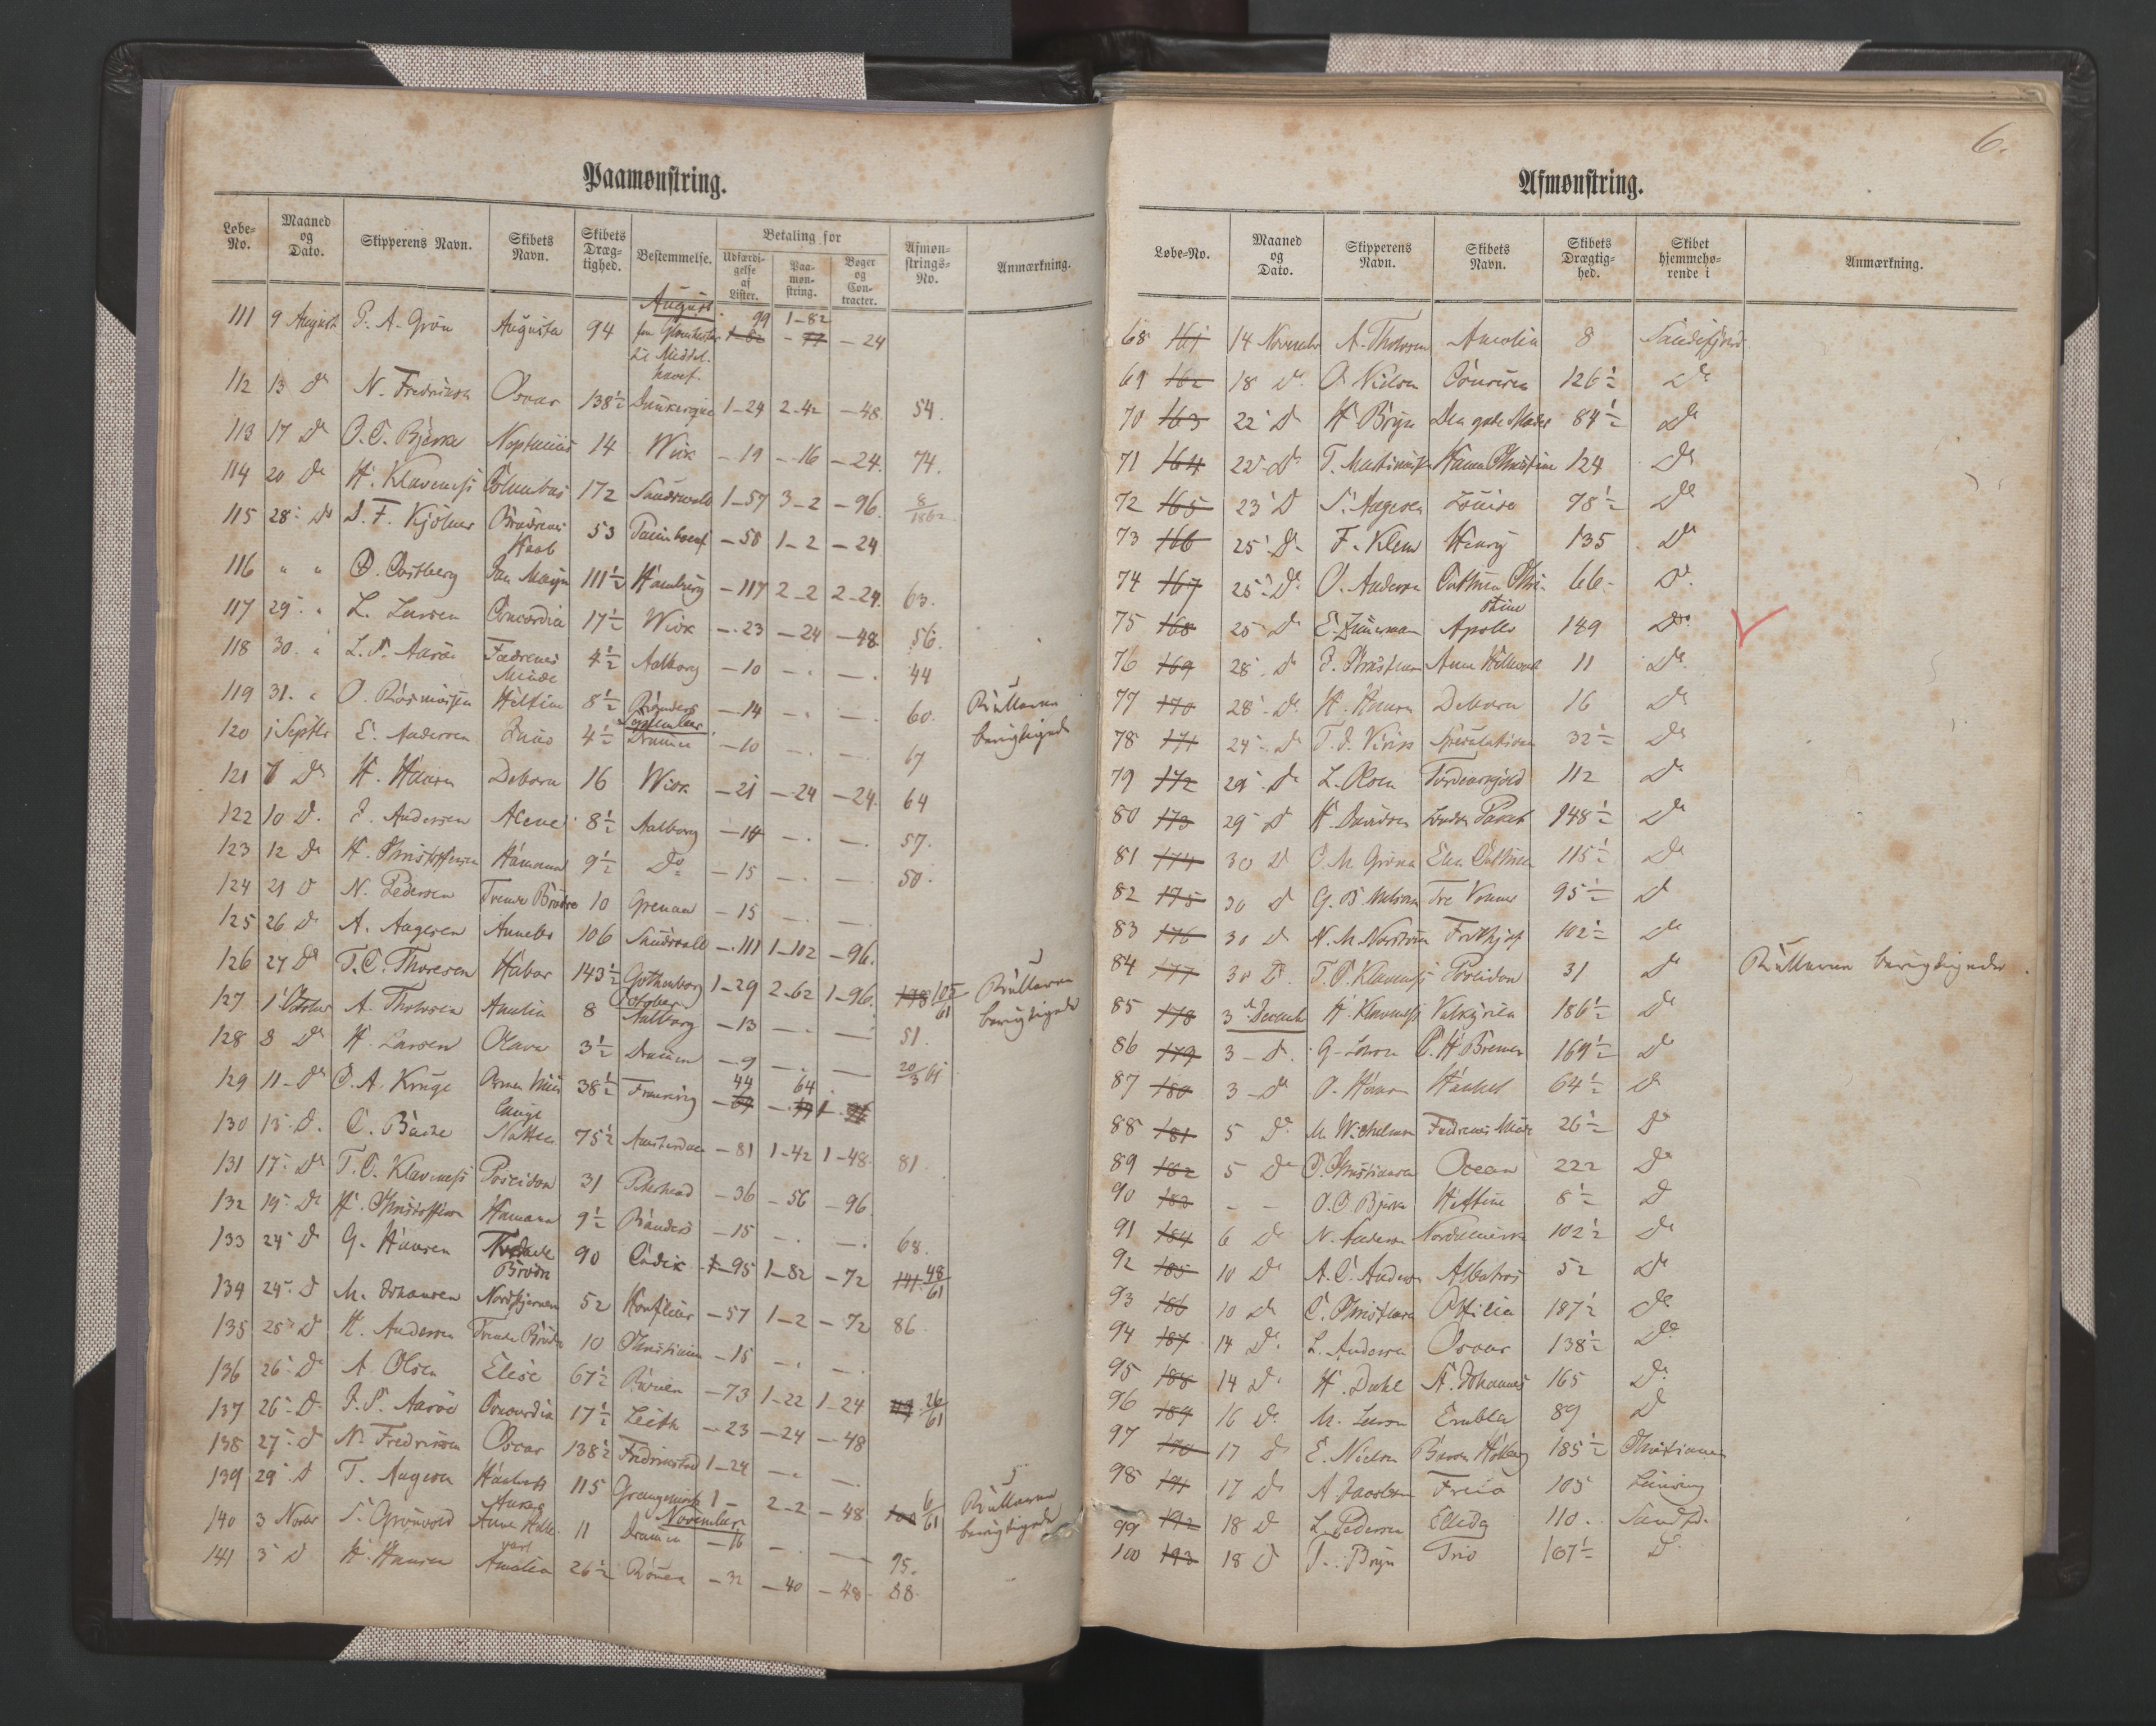 Paamønstring.
Løbe-No. Maaned og Dato. Skipperens Navn. Skibets Navn. Skibets Dræg-tighed. Bestemmelse. Betaling for Udfærdi-gelse af Lister. Paa-møn-string. Bøger og Con-tracter. Afmøn-strings-No. Anmærkning.
August
111 9 August P. A. Grøn Augusta 94 til Middel-havet. 99 1-82 -24
112 13 Do N. Fredriksen Oscar 138½ Dunkerque 1-24 2-42 -48 54.
113 17 Do O. C. Bjerke Neptunus 14 Wick -19 -16 -24. 74.
114 20 Do H. Klaveness Columbus 172 Sundsvall 1-57 3-2 -96. 8/1862
115 28 Do Brødrenes Haab 53 -58 1-2 -24
116 " " Jan Mayn 111½ Hamburg -117 2-2 2-24. 63.
117 29 " L. Larsen Concordia 17½ Wick -23 -24 -48 56.
118 30 " L. P. Aarøe Fædrenes Minde 4½ Aalborg -10 - - 44
119 31. " O. Rasmussen Hettine 8½ Randers -14 - - 60. Rullerne berigtigede
September
120 1 Septbr E. Andersen Juno 4½ Drammen -10 - - 67
121 7 Do H. Hansen Debora 16 Wick -21 -24 -24. 64
122 10 D. J. Andersen Alene 8½ Aalborg -14 - - 57.
123 12 Do H. Christoffersen Hamanna 9½ Do -15 - - 50.
124 21 D N. Pedersen Trende Brødre 10 Grenaa -15 - -
125 26 D A. Aagesen Annebo 106 Sundsvall -111 1-102 -96.
126 27 Do T. C. Thoresen Habor 143½ Gothenborg 1-29 2-62 1-96. 105/61 Rullerne berigtigede
October
127 1 October A. Tholvsen Amalia 8 Aalborg -13 - - 51.
128 8 Do H. Larsen Olava 3½ Drammen -9 - - 20/3 61
129 11 Do C. A. Kruge 38½ 44 64
130 15 D. C. Bache Natten 75½ Amsterdam -81 1-42 1-48. 81.
131 17 Do T. C. Klaveness Poseidon 31 Peterhead -36 -56 -96.
132 19 Do H. Christoffersen Hamanna 9½ Randers -15 - - 68.
133 24 D G. Hansen Trende Brødre 90 Cadix 1-95 1-82 -72 141 48/61
134 24 D M. Johansen Nordstjernen 52 Honfleur -57 1-2 -72 86.
135 25 D H. Andersen Trende Brødre 10 Christiania -15 - -
136 26 Do A. Olsen Elise 67½ -73 1-22 1-24 26/61
137 26 D. J. P. Aarøe Concordia 17½ Leith -23 -24 -48
138 27 D N. Fredriksen Oscar 138½ Fredrikstad 1-24 - -
139 29 D T. Aagesen 115 Grangemouth 1- 2-2 -48 6/61 Rullerne berigtigede
November
140 3 Novbr S. Grønvold Anna Helle-vart 11 Drammen -16 - - 95.
141 5 D H. Hansen Amalia 26½ Rouen -32 -40 -48 88.
6.
Afmønstring.
Løbe-No. Maaned og Dato. Skipperens Navn. Skibets Navn. Skibets Drægtig-hed. Skibet hjemmehø-rende i Anmærkning.
68 161 14 November A. Tholvsen Amalia 8 Sandefjord
69 162 18 D. O. Nielsen 126½ Do
70 163 22 D H. Bryn Den gode Moder 84½ Do
71 164 22 D T. Martinussen Hanna Christine 124 Do
72 165 23 D S. Aagesen Louise 78½ Do
73 166 25 D. F. Klem Henry 135 Do
74 167 25 Do O. Andersen Cathrine Chri-stine 66 D.
75 168 25 D E. Zimerman Apollo 149 Do
76 169 28 D J. Christensen Anna Hellevard 11 Do
77 170 28 Do H. Hansen Debora 16 Do
78 171 24 D Speculation 32½ Do
79 172 29 D L. Olsen Tordenskjold 112 Do
80 173 29 D H. Davidsen London Paket 148½ Do
81 174 30 D C. M. Grønn Elen Cathrine 115½ Do
82 175 30 D Tre Venner 95½ D
83 176 30 D N. M. Norstrøm Frithjof 102½ Do
84 177 30 D. T. C. Klaveness Poseidon 31 Do Rullerne berigtigede.
85 178 3 Decemb H. Klaveness Valkyrien 186½ Do
86 179 3 D. G. Larsen C. H. Bremer 169½ D
87 180 3 D O. Hansen 64½ D
88 181 5 Do M. Wilhelmsen Fædrenes Minde 26½ Do
89 182 5 Do C. Christiansen Ocean 222 Do
90 183 - - O. C. Bjerke Hettine 8½ D
91 184 6 D N. Andersen 102½ Do
92 185 10 D A. C. Anders Albatros 52 Do
93 186 10 D C. Christensen Ottilia 187½ Do
94 187 14 D. L. Andersen Oscar 138½ Do
95 188 14 D. H. Dahl St. Johannes 165 D.
96 189 16 D. M. Larsen Embla 89 D
97 190 17 D E. Nielsen Baron Holberg 185½ Christiania
98 191 17 D A Jacobsen Freia 105
99 192 18 D L. Pedersen Ellida 110. Sandfd.
100 193 18 D T. Bryn Trio 107½ D.